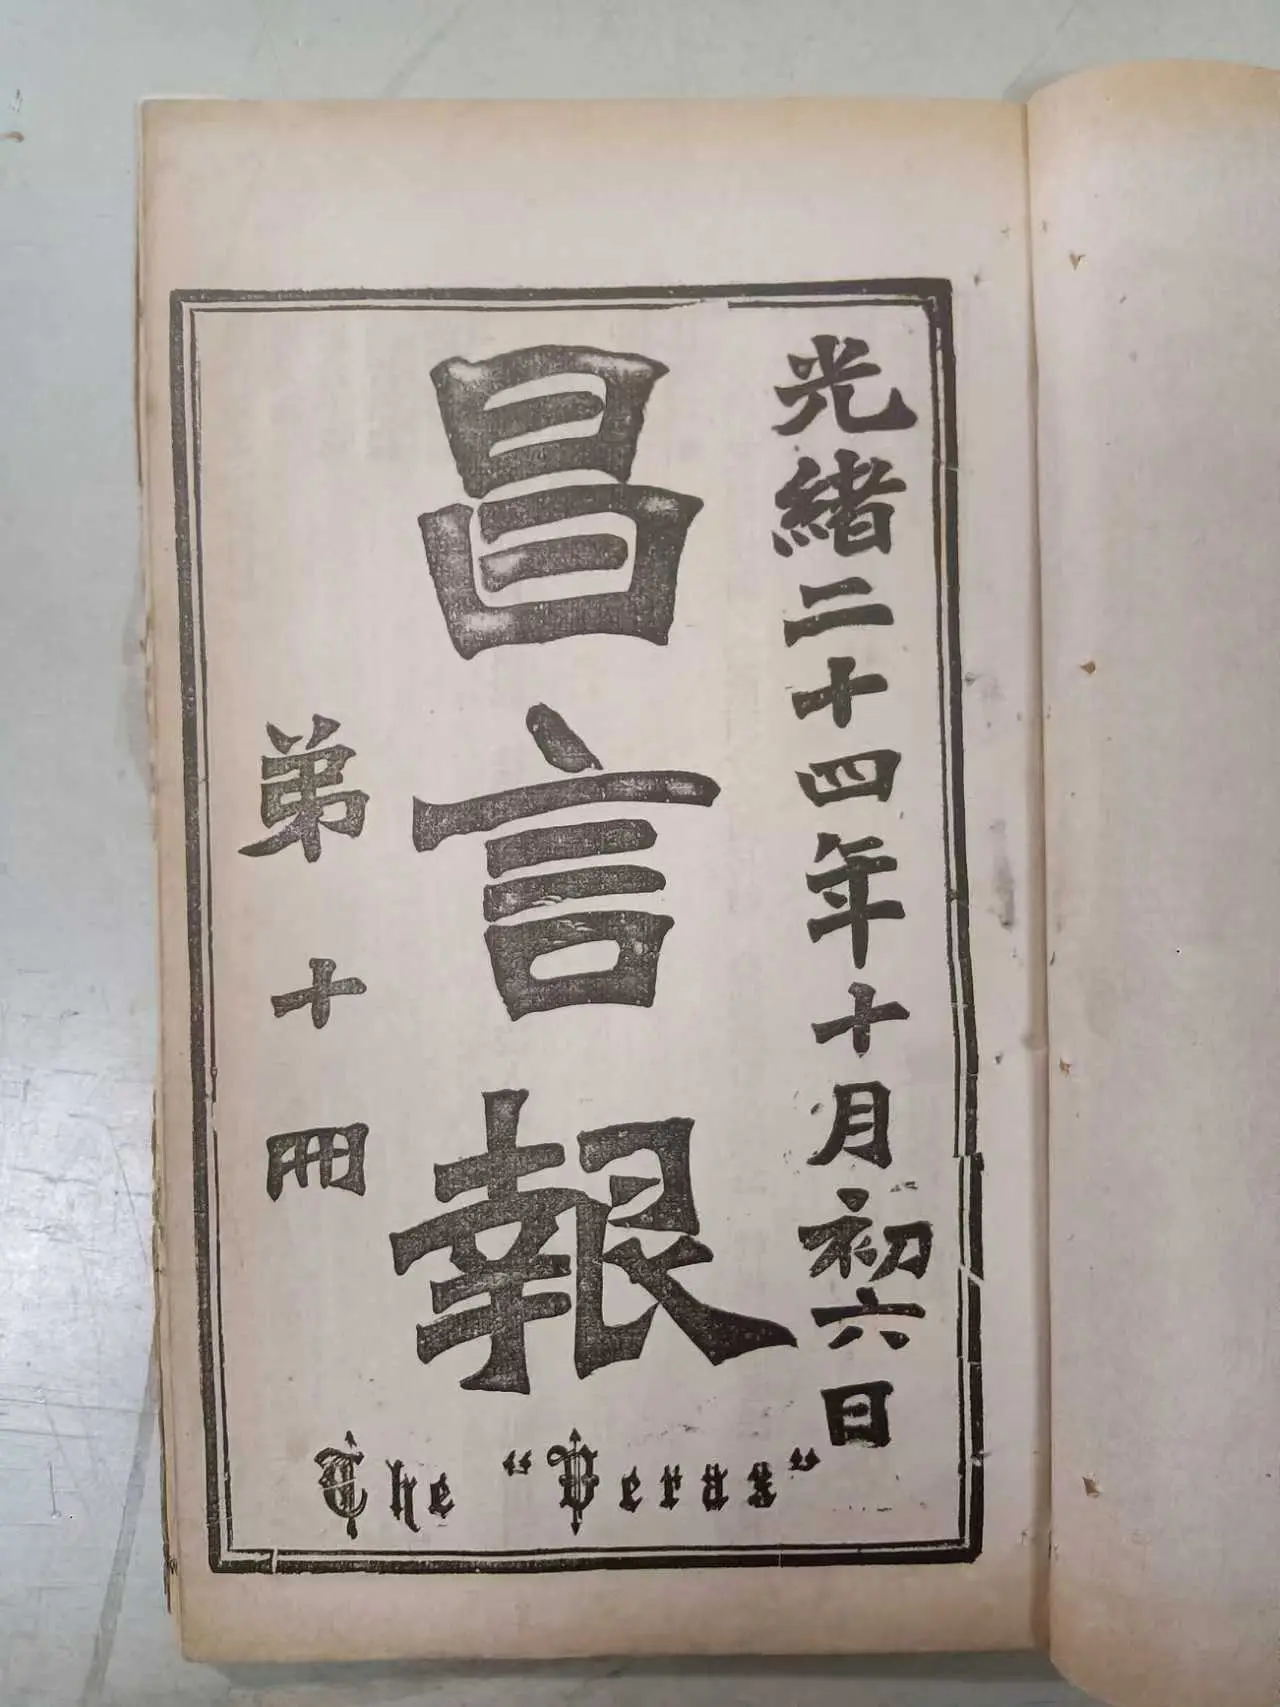 光緒二十四年十月初六日
昌言報
弟十冊
The "Verax"